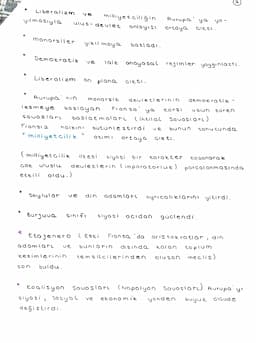 • Liberalizm ve milliyetçiliğin Avrupa'ya ya-
yılmasıyla ulus-devlet anlayışı ortaya çıktı.
• monarşiler yıkılmaya başladı.
• Demokratik ve laik anayasal rejimler yaygınlaştı.
• Liberalizm ön plana çıktı.
• Avrupa'nın monarşik devletlerinin demokratik-
leşmeye başlayan Fransa'ya karşı uzun süren
savaşları başlatmaları (İhtilal Savaşları)
Fransız halkını bütünleştirdi ve bunun sonucunda
"milliyetçilik" akımı ortaya çıktı.
(milliyetçilik ilkesi siyasi bir karakter kazanarak
çok uluslu devletlerin (imparatorluk) parçalanmasında
etkili oldu.)
• Soylular ve din adamları ayrıcalıklarını yitirdi.
• Burjuva sınıfı siyasi açıdan güçlendi.
• Etajenero (Eski Fransa'da aristokratlar, din
adamları ve bunların dışında kalan toplum
kesimlerinin temsilcilerinden oluşan meclis)
son buldu.
• Koalisyon Savaşları (Napolyon Savaşları) Avrupa'yı
siyasi, sosyal ve ekonomik yönden büyük ölçüde
değiştirdi.